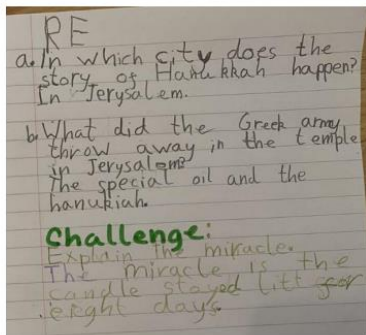 RE
a. In which city does the
story of Hanukkah happen?
In Jerysalem.
b. What did the Greek army
throw away in the temple
in Jerysalem?
The special oil and the
hanukiah.
Challenge:
Explain the miracle.
The miracle is the
candle stayed litt for
eight days.